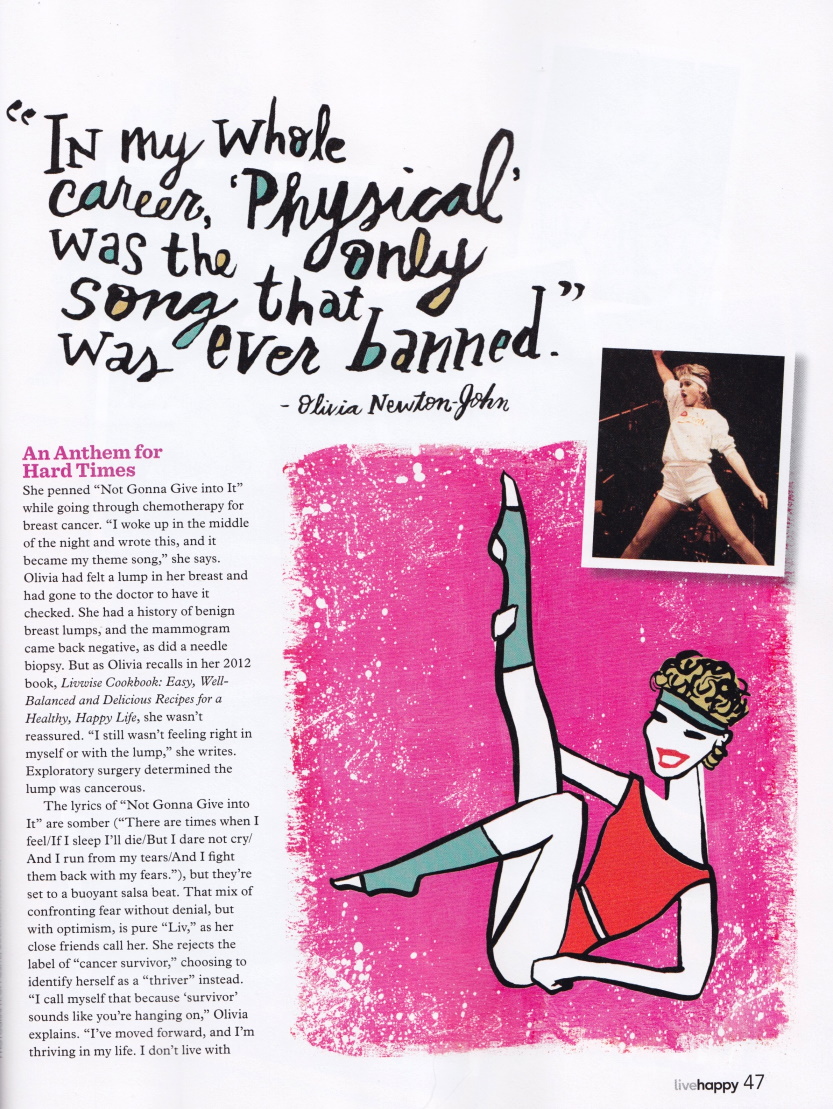 “In my whole
career, ‘Physical’
was the only
song that
was ever banned.”
- Olivia Newton-John
An Anthem for
Hard Times
She penned “Not Gonna Give into It”
while going through chemotherapy for
breast cancer. “I woke up in the middle
of the night and wrote this, and it
became my theme song,” she says.
Olivia had felt a lump in her breast and
had gone to the doctor to have it
checked. She had a history of benign
breast lumps, and the mammogram
came back negative, as did a needle
biopsy. But as Olivia recalls in her 2012
book, Livwise Cookbook: Easy, Well-
Balanced and Delicious Recipes for a
Healthy, Happy Life, she wasn’t
reassured. “I still wasn’t feeling right in
myself or with the lump,” she writes.
Exploratory surgery determined the
lump was cancerous.
The lyrics of “Not Gonna Give into
It” are somber (“There are times when I
feel/If I sleep I’ll die/But I dare not cry/
And I run from my tears/And I fight
them back with my fears.”), but they’re
set to a buoyant salsa beat. That mix of
confronting fear without denial, but
with optimism, is pure “Liv,” as her
close friends call her. She rejects the
label of “cancer survivor,” choosing to
identify herself as a “thriver” instead.
“I call myself that because ‘survivor’
sounds like you’re hanging on,” Olivia
explains. “I’ve moved forward, and I’m
thriving in my life. I don’t live with
livehappy 47